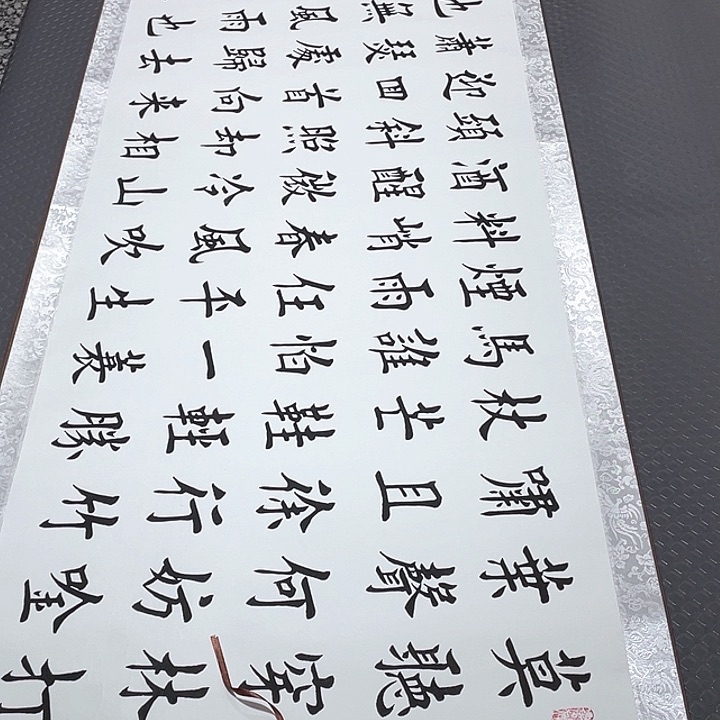 莫聽穿林打
葉聲何妨吟
嘯且徐行竹
杖芒鞋輕勝
馬誰怕一蓑
煙雨任平生
料峭春風吹
酒醒微冷山
頭斜照却相
迎回首向來
蕭瑟處歸去
也無風雨也